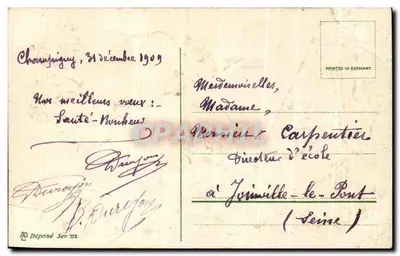 Champigny, 31 décembre 1909
Nos meilleurs vœux :-
Santé - Bonheur
Duroyon
Duroyon
B. Duroyon
Deposé Ser. 172
PRINTED IN GERMANY
Mesdemoiselles,
Madame,
Monsieur Carpentier
Directeur d'école
à Joinville-le-Pont
(Seine)